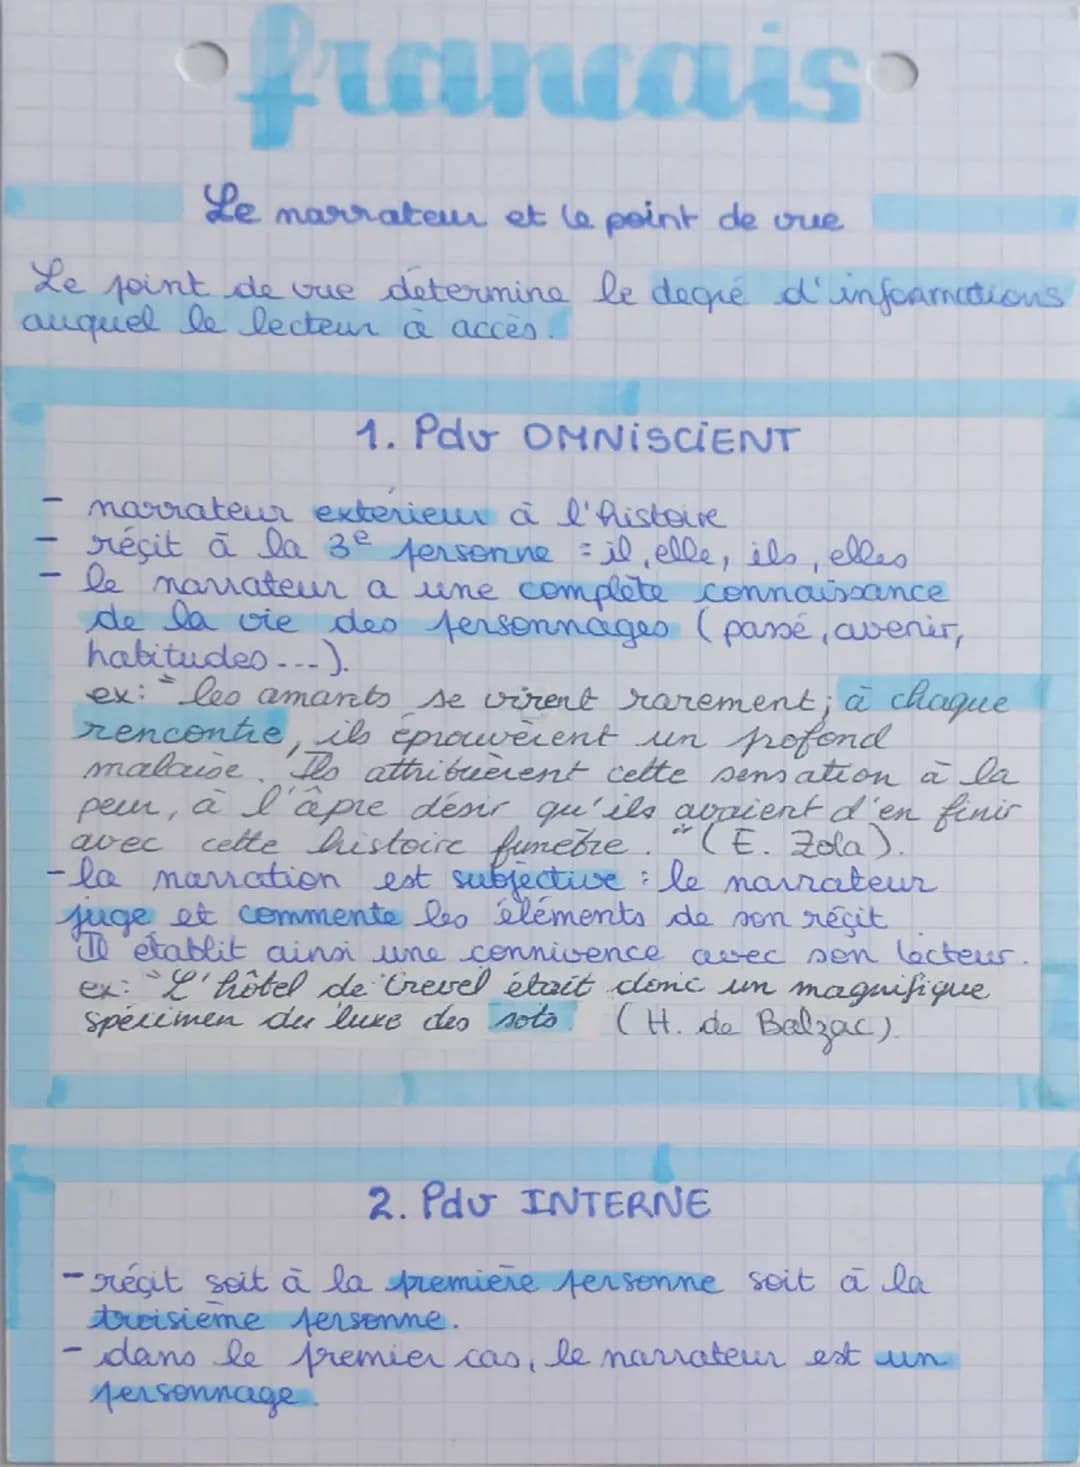 français
Le narrateur et le point de vue
Le point de vue détermine le degré d'informations
auquel le lecteur à accès.
1. Pdv OMNISCIENT
- narrateur extérieur à l'histoire
- récit à la 3e personne = il, elle, ils, elles
- le narrateur a une complète connaissance
de la vie des personnages (passé, avenir,
habitudes...).
ex: "les amants se virent rarement; à chaque
rencontre, ils éprouvèrent un profond
malaise. Ils attribuèrent cette sensation à la
peur, à l'âpre désir qu'ils avaient d'en finir
avec cette histoire funèbre." (E. Zola).
- la narration est subjective : le narrateur
juge et commente les éléments de son récit
Il établit ainsi une connivence avec son lecteur.
ex: "L'hôtel de Crevel était donc un magnifique
spécimen du luxe des sots. (H. de Balzac).
2. Pdv INTERNE
- récit soit à la première personne soit à la
troisième personne.
- dans le premier cas, le narrateur est un
personnage.